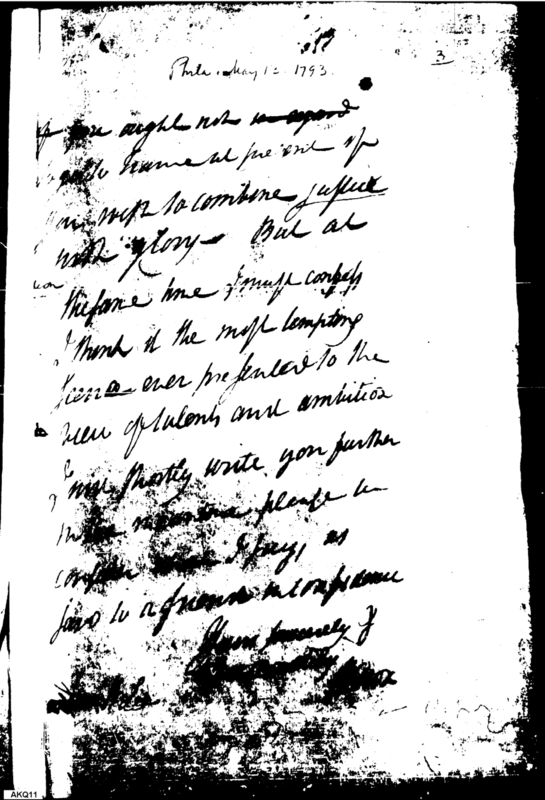 3
Phila. May 12. 1793.
you ought not to regard
name at present if
you wish to combine justice
with glory — But at
the same time I must confess
I think it the most tempting
ever presented to the
view of talents and ambition
I will shortly write you further
in the mean time please
consider I say, as
said to a friend in confidence
Yours sincerely
Knox
AKQ11